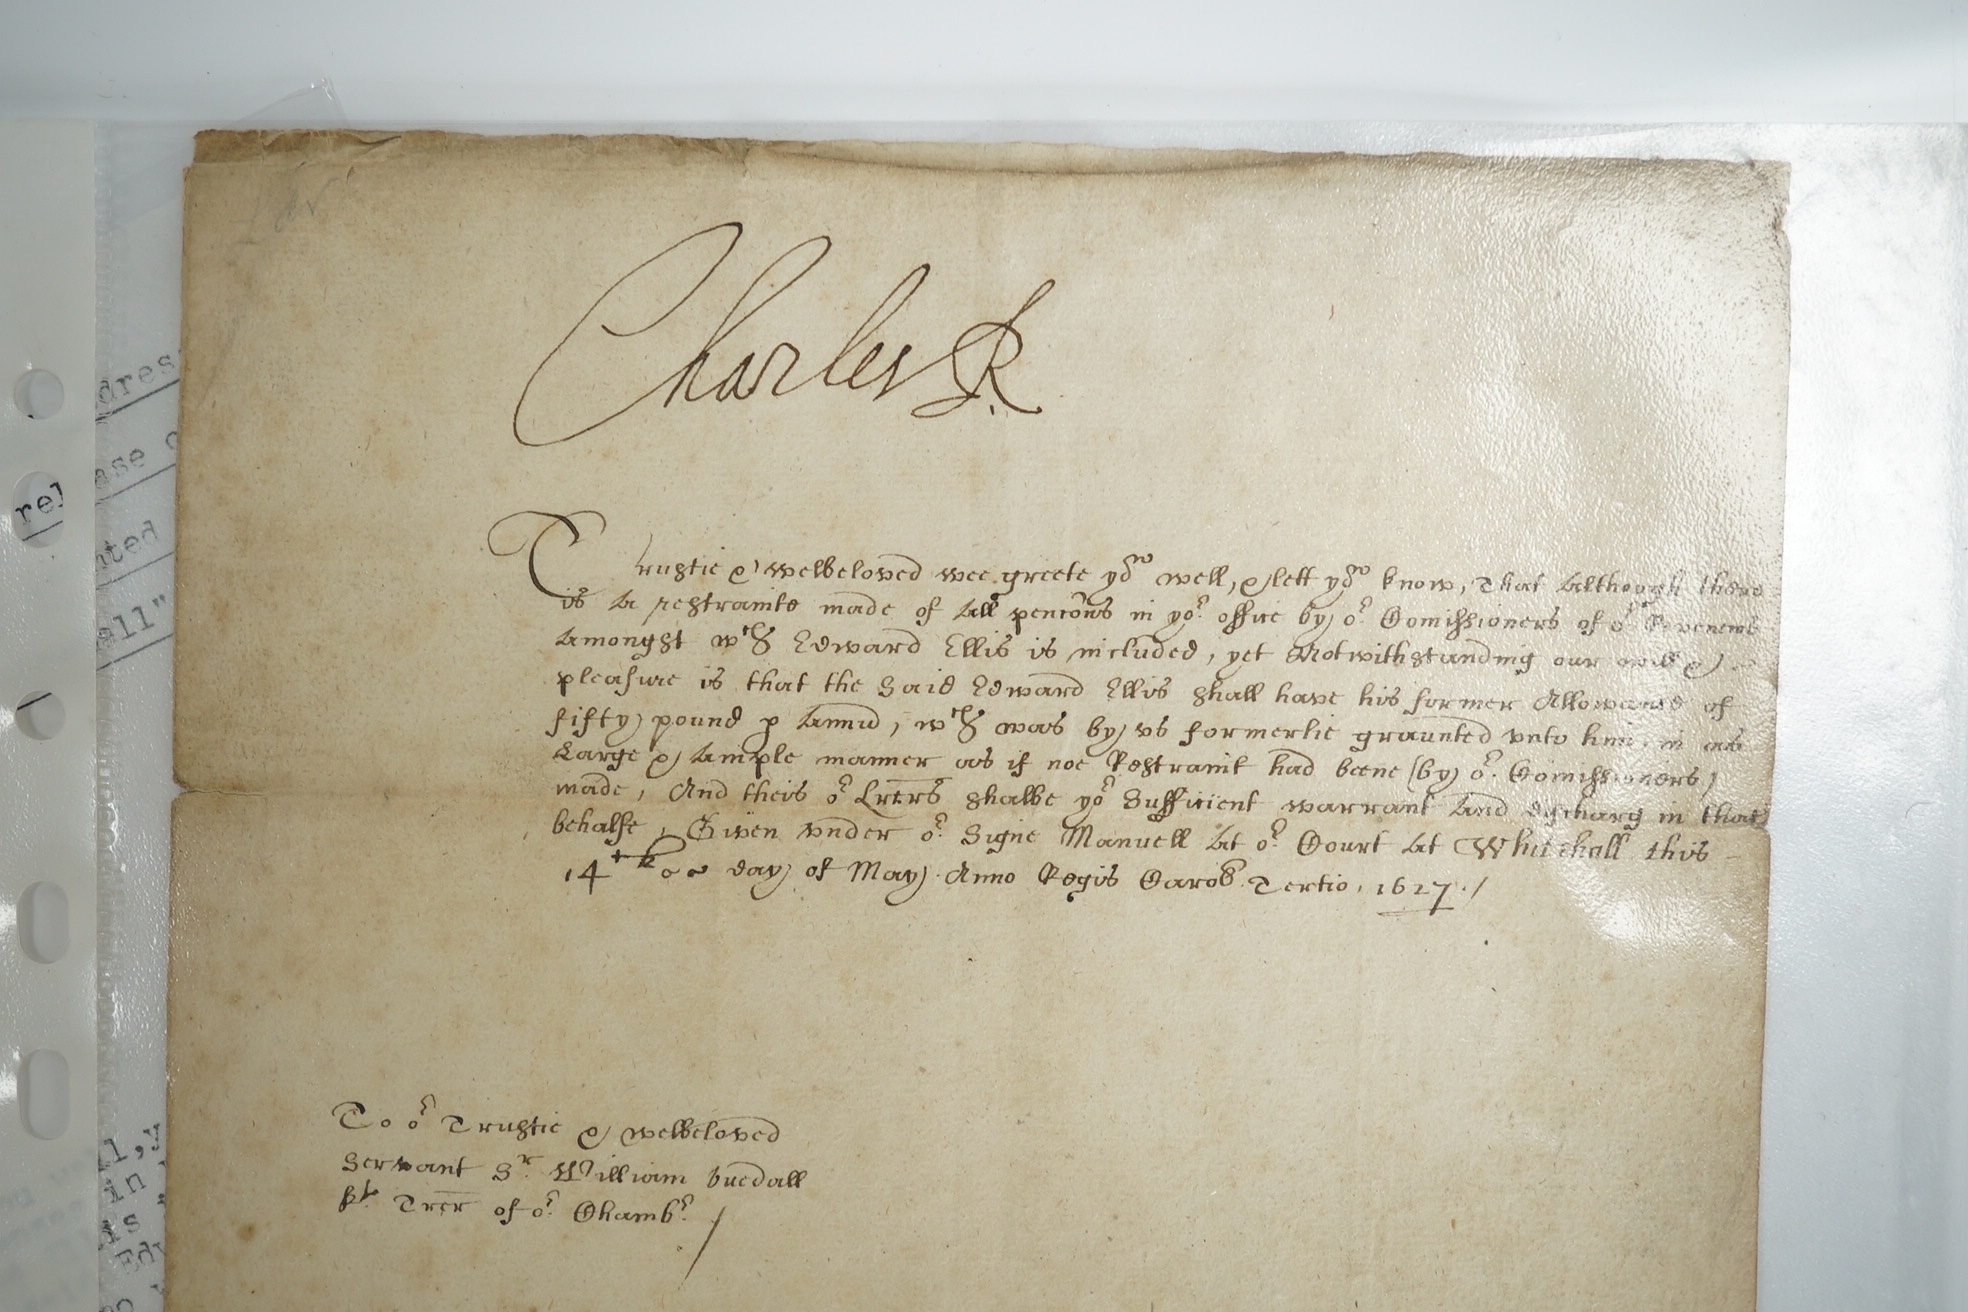 Charles R.
Trustie & welbeloved wee greete yow well, & lett yow know, That although there
is a restrainte made of all pencõns in yor office by or Comissioners of or Revenews
amongst wch Edward Ellis is included, yet Notwithstanding our will &
pleasure is that the said Edward Ellis shall have his former Allowance of
fifty pound p annũ, wch was by vs formerlie graunted vnto him, in as
Large & ample manner as if noe Restraint had beene (by or Comissioners)
made, And theis or Lrẽs shalbe yor Sufficient warrant and discharg in that
behalfe, Given vnder or Signe Manuell at or Court at Whitehall this
14th day of May Anno Regis Carob Tertio, 1627./
To or Trustie & welbeloved
Servant Sr William vuedall
kt Trer of or Chambr /
rel
dres
ase
ted
all"
in